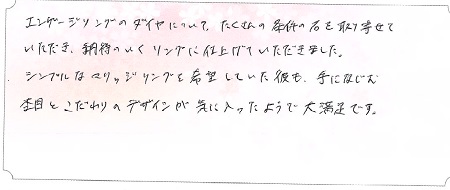 エンゲージリングのダイヤについて、たくさんの条件の石を取り寄せて
いただき、納得のいくリングに仕上げていただきました。
シンプルなマリッジリングを希望していた彼も、手になじむ
杢目とこだわりのデザインが気に入ったようで大満足です。